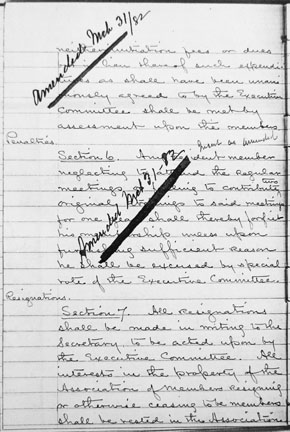 Amended Mch 31/82
neither initiation fees or dues
than share of such expendi-
as shall have been unani-
mously agreed to by the Executive
Committee shall be met by
assessment upon the members.
Insert as Amended
Penalties.
Section 6. Any member
neglecting to attend the regular
meetings to contribute two
original to said meetings
for one year shall thereby forfeit
his membership unless upon
furnishing sufficient reason
he shall be excused by special
vote of the Executive Committee.
Amended Mch 31/82
Resignations.
Section 7. All resignations
shall be made in writing to the
Secretary, to be acted upon by
the Executive Committee. All
interests in the property of the
Association of members resigning
or otherwise ceasing to be members
shall be vested in the Association